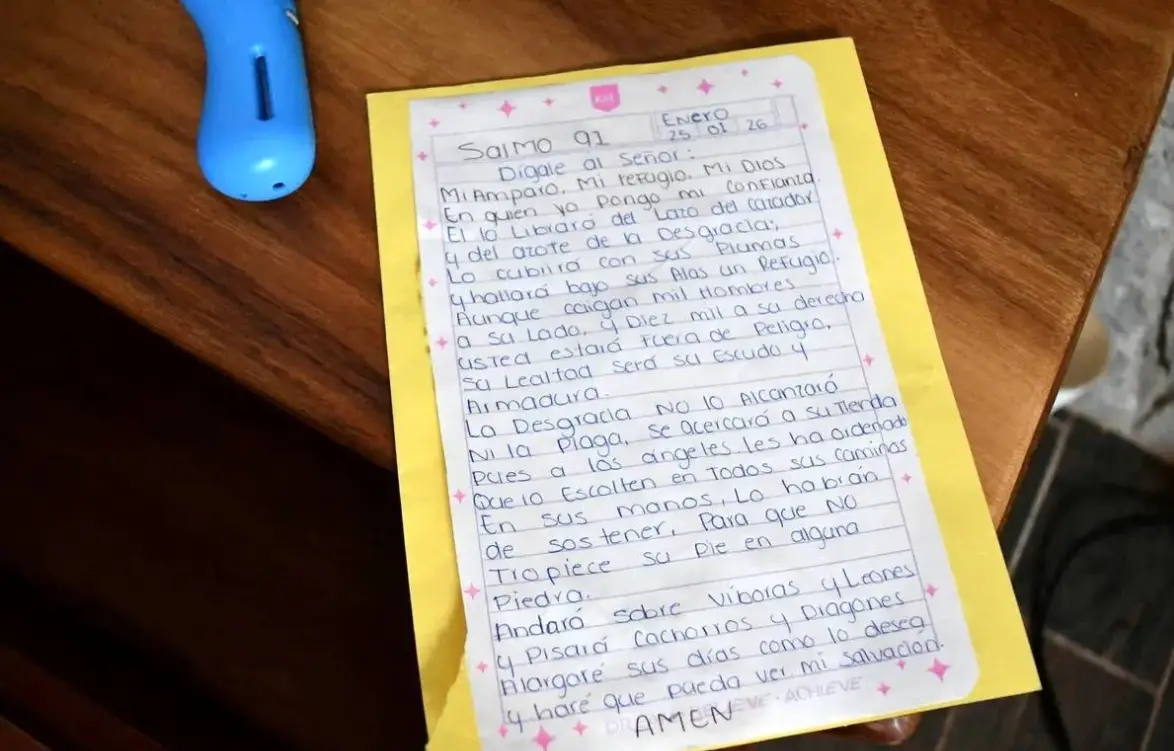 Salmo 91
Enero
25 01 26
Dígale al Señor:
Mi Amparo, Mi refugio, Mi Dios
En quien yo pongo mi confianza.
El lo Librará del Lazo del cazador
y del azote de la Desgracia;
Lo cubrirá con sus Plumas
y hallará bajo sus Alas un Refugio.
Aunque caigan mil Hombres
a su Lado, y Diez mil a su derecha
usted estará fuera de Peligro,
su Lealtad será su Escudo y
Armadura.
La Desgracia No lo Alcanzará
Ni la Plaga, se acercará a su Tienda
pues a los ángeles les ha ordenado
Que lo Escolten en Todos sus caminos
En sus manos, Lo habrán
de sostener, Para que NO
Tropiece su pie en alguna
Piedra.
Andará sobre víboras y Leones
y Pisará cachorros y Dragones
Alargaré sus días como lo desea
y haré que pueda ver mi salvación.
AMEN
ACHIEVE